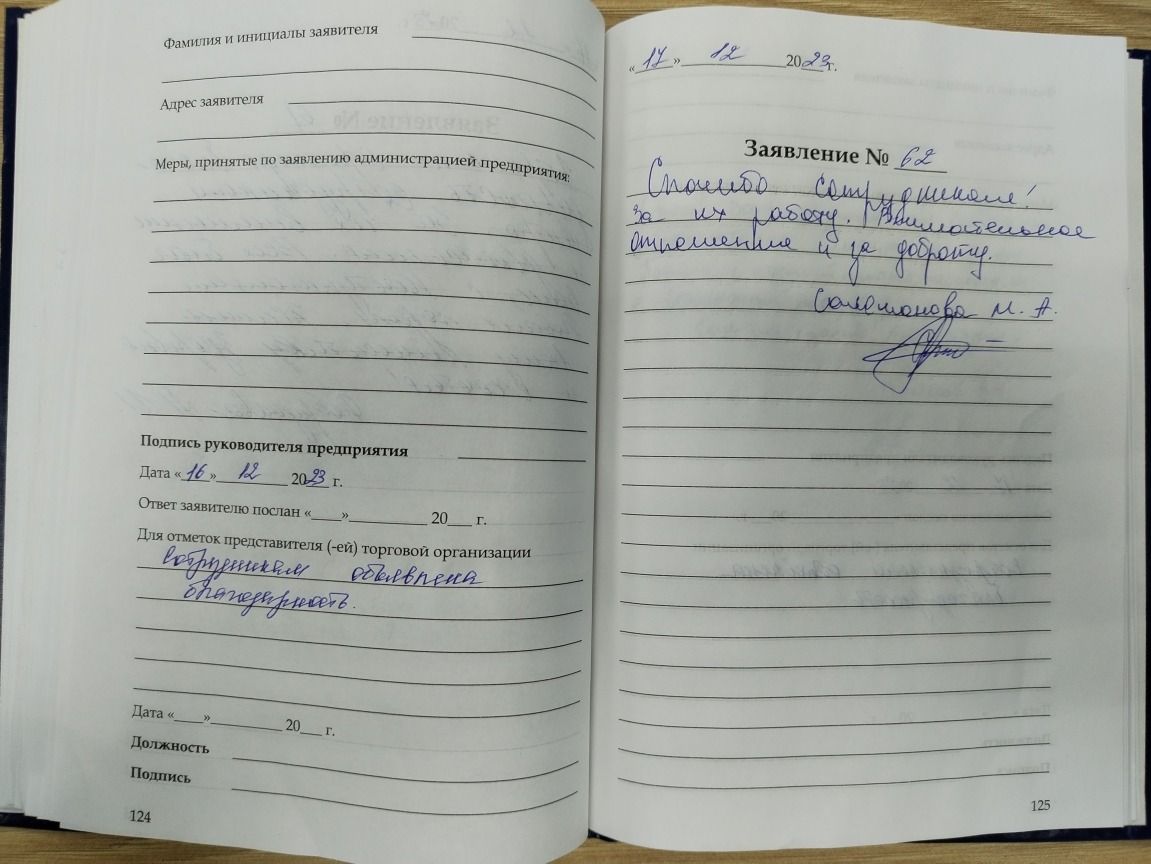 Фамилия и инициалы заявителя
Адрес заявителя
Меры, принятые по заявлению администрацией предприятия:
Подпись руководителя предприятия
Дата «16» 12 2023 г.
Ответ заявителю послан «____»__________ 20___ г.
Для отметок представителя (-ей) торговой организации
Сотрудникам объявлена
благодарность.
Дата «____»__________ 20___ г.
Должность
Подпись
124
«17» 12 2023 г.
Заявление № 62
Спасибо сотрудникам!
За их работу. Внимательное
отношение и за доброту.
Саламанова М. А.
125